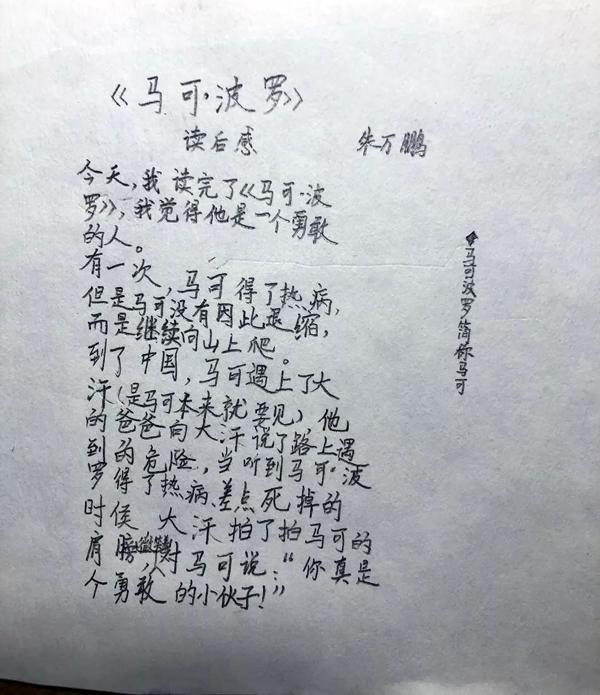 《马可·波罗》
读后感 朱万鹏
今天，我读完了《马可·波
罗》，我觉得他是一个勇敢
的人。
有一次，马可得了热病，
但是马可没有因此退缩，
而是继续向山上爬。
到了中国，马可遇上了大
汗（是马可本来就要见），他
的爸爸向大汗说了路上遇
到的危险，当听到马可·波
罗得了热病、差点死掉的
时侯，大汗拍了拍马可的
肩膀，对马可说：“你真是
个勇敢的小伙子！”
马可波罗简你马可